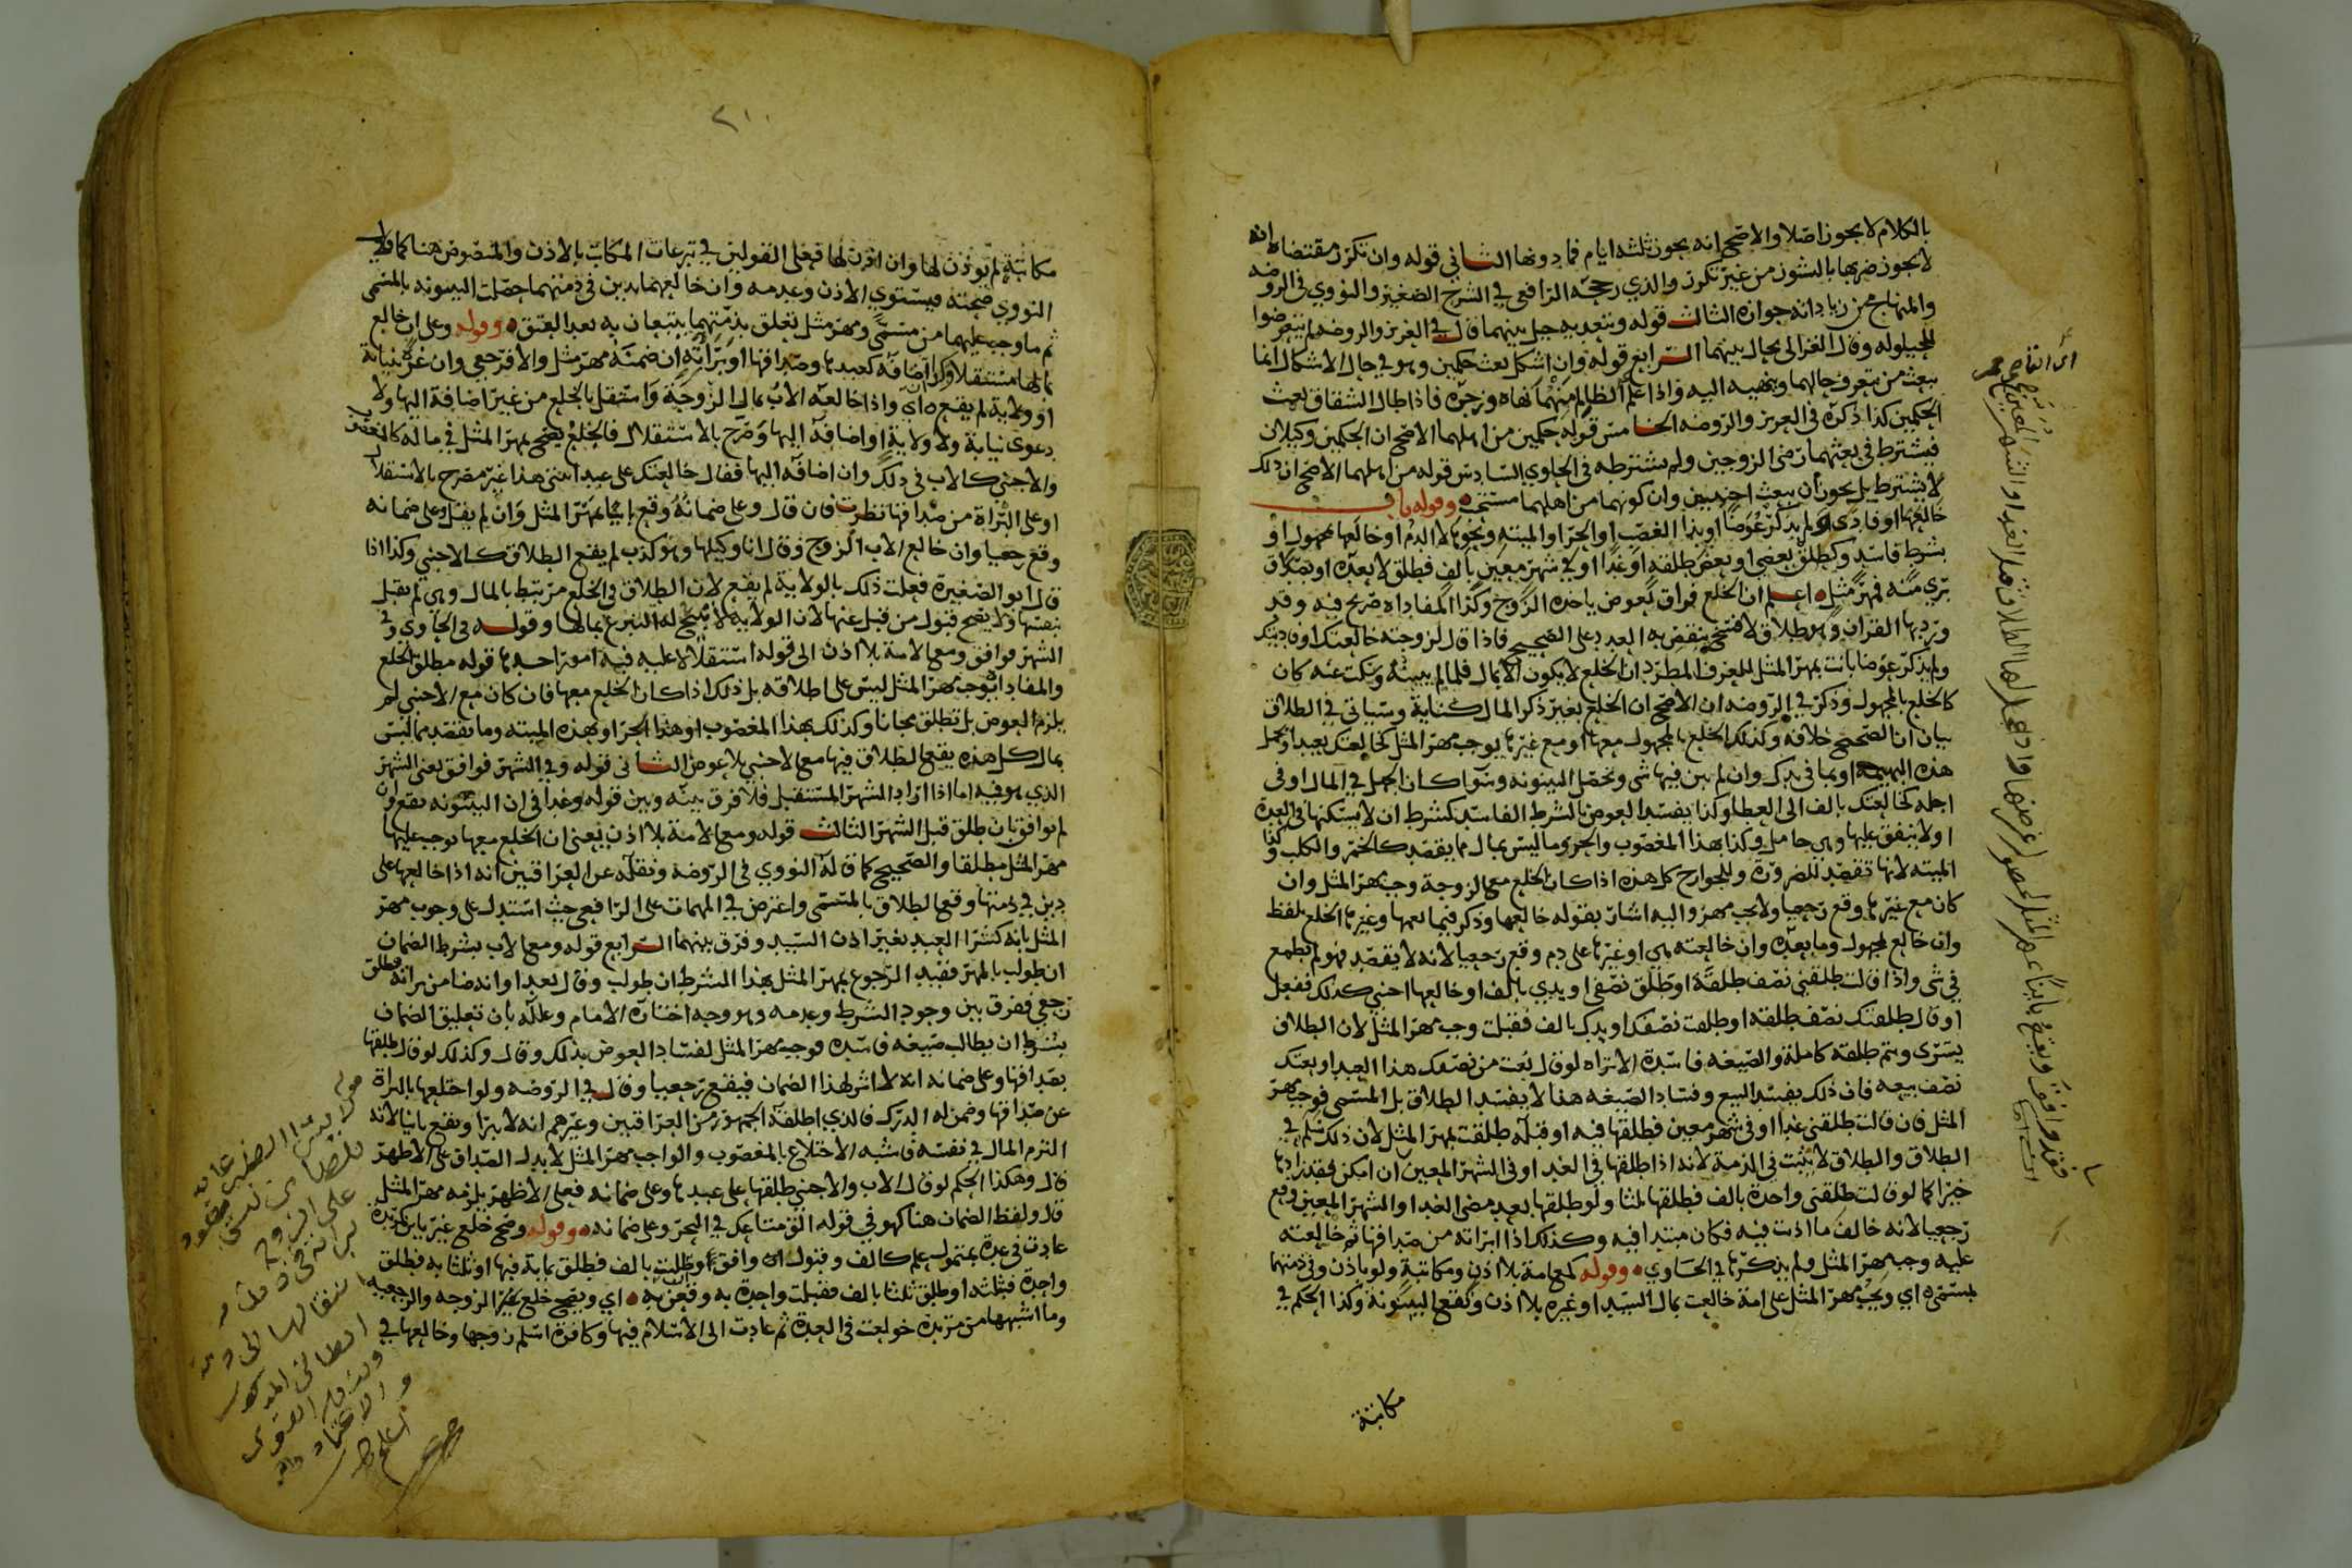 بالكلام لا يجوز اصلا والاصح انه يجوز ثلثه ايام فما دونها الثاني قوله وان تكرر مقتضاه انه
لا يجوز ضربها بالنشوز من غير تكرر والذي رجحه الرافعي في الشرح الصغير والنووي في الروضه
والمنهاج من زياداته جوازه الثالث قوله وتعديه حيل بينهما قال في العزيز والروضه لم يتعرضوا
للحيلوله وقال الغزالي يحال بينهما الرابع قوله وان اشكل بعث حكمين وهو في حال الاشكال انما
يبعث من يتعرف حالهما وينهيه اليه واذا علم الظالم منهما نهاه وزجره فاذا طال الشقاق بعث
الحكمين كذا ذكره في العزيز والروضه الخامس قوله حكمين من اهلهما الاصح ان الحكمين وكيلان
فيشترط في بعثهما رضى الزوجين ولم يشترطه في الحاوي السادس قوله من اهلهما الاصح ان ذلك
لا يشترط بل يجوز ان يبعث اجنبيين وان كونهما من اهلهما مستحب وقوله باب
خالعها او فادى ولم يذكر عوضا او بذا الغصب او الحر او الميته ونحوها لا الدم او خالعها بمجهول او
بشرط فاسد وكطلق بعضي او بعض طلقه او غدا او في شهر معين بالف فطلق لا بعده او بصداق
بري منه فمهر مثل اعلم ان الخلع فراق بعوض ياخذه الزوج وكذا المفاداه صريح فيه وقد
ورد بها القران وهو طلاق لا فسخ ينقص به العدد على الصحيح فاذا قال لزوجته خالعتك او فاديتك
ولم يذكر عوضا بانت بمهر المثل للعرف المطرد ان الخلع لا يكون الا بمال فلما لم يبينه وسكت عنه كان
كالخلع بالمجهول وذكر في الروضه ان الاصح ان الخلع بغير ذكر المال كناية وسياتي في الطلاق
بيان ان الصحيح خلافه وكذلك الخلع بالمجهول معها او مع غيرها يوجب مهر المثل كخالعتك بعبد او بحمل
هذه البهيمه او بما في يدك وان لم يبن فيها شي وتحصل البينونه وسوا كان الجهل في المال او في
اجله كخالعتك بالف الى العطا وكذا يفسد العوض بالشرط الفاسد كشرط ان لا يسكنها في العدة
او لا ينفق عليها وهي حامل وكذا بهذا المغصوب والحر وما ليس بمال مما يقصد كالخمر والكلب وكذا
الميته لانها تقصد للضرورة وللجوارح كل هذه اذا كان الخلع مع الزوجة وجب مهر المثل وان
كان مع غيرها وقع رجعيا ولا يجب مهر واليه اشار بقوله خالعها وذكر فيما معها وغيرها الخلع بلفظ
وان خالع بمجهول وما بعده وان خالعته هي او غيرها على دم وقع رجعيا لانه لا يقصد فهو لم يطمع
في شي واذا قالت طلقني نصف طلقة او طلق نصفي او يدي بالف او خالعها اجنبي كذلك ففعل
او قال طلقتك نصف طلقة او طلقت نصفك او يدك بالف فقبلت وجب مهر المثل لان الطلاق
يسرى ويتم طلقة كاملة والصيغه فاسدة الا تراه لو قال بعت من نصفك هذا العبد او بعتك
نصف بيعه فان ذلك يفسد البيع وفساد الصيغه هنا لا يفسد الطلاق بل المسمى فوجب مهر
المثل فان قالت طلقني غدا او في شهر معين فطلقها فيه او قبله طلقت بمهر المثل لان ذلك سلم في
الطلاق والطلاق لا يثبت في الذمة لانه اذا طلقها في الغد او في الشهر المعين ان امكن فقد زادها
خيرا كما لو قالت طلقني واحدة بالف فطلقها ثلثا ولو طلقها بعد مضى الغد او الشهر المعين وقع
رجعيا لانه خالف ما اذنت فيه فكان مبتديا فيه وكذلك اذا ابراته من صداقها ثم خالعته
عليه وجب مهر المثل ولم يذكرها في الحاوي وقوله كمع امة بلا اذن ومكاتبة ولو باذن وفي ذمتهما
بمسمى اي ويجب مهر المثل على امة خالعت بمال السيد او غيره بلا اذن وتقع البينونة وكذا الحكم في
مكاتبة
٢١٠
مكاتبة لم يوذن لها وان اذن لها فعلى القولين في تبرعات المكاتب بالاذن والمنصوص هنا كما قال
النووي صحته فيستوي الاذن وعدمه وان خالعهما بدين في ذمتهما حصلت البينونه بالمسمى
ثم ما وجب عليهما من مسمى ومهر مثل تعلق بذمتهما يتبعان به بعد العتق وقوله وعلى اب خالع
بمالها مستقلا وكذا اضافه كعبدها وصداقها او براته ان ضمنه مهر مثل والا فرجعي وان غره بنيابة
او ولاية لم يقع اي واذا خالعه الاب بمال الزوجة واستقل بالخلع من غير اضافة اليها ولا
دعوى نيابة ولا ولاية او اضافه اليها وصرح بالاستقلال فالخلع يصح بمهر المثل في ماله كالمغصوب
والاجنبي كالاب في ذلك وان اضافه اليها فقال خالعتك على عبد ابنتي هذا غير مصرح بالاستقلال
او على البراة من صداقها نظرت فان قال وعلى ضمانه وقع بائنا بمهر المثل وان لم يقل وعلى ضمانه
وقع رجعيا وان خالع الاب الزوج وقال انا وكيلها وهو كذب لم يقع الطلاق كالاجنبي وكذا اذا
قال ابو الصغيرة فعلت ذلك بالولاية لم يقع لان الطلاق في الخلع مرتبط بالمال وهي لم تقبل
بنفسها ولا يصح قبول من قبل عنها لان الولاية لا تبيح له التبرع بمالها وقوله في الحاوي وفي
الشهر فوافق ومع الامة بلا اذن الى قوله استقلالا عليه فيه امور احدها قوله مطلق الخلع
والمفاداة يوجب مهر المثل ليس على اطلاقه بل ذلك اذا كان الخلع معها فان كان مع الاجنبي لم
يلزم العوض بل تطلق مجانا وكذلك بهذا المغصوب او هذا الحر او بهذه الميته وما يقصد مما ليس
بمال كل هذه يقع الطلاق فيها مع الاجنبي بلا عوض الثاني قوله وفي الشهر فوافق يعني الشهر
الذي هو فيه اما اذا اراد الشهر المستقبل فلا فرق بينه وبين قوله وغدا في ان البينونه تقع وان
لم يوافق بان طلق قبل الشهر الثالث قوله ومع الامة بلا اذن يعني ان الخلع معها يوجب عليها
مهر المثل مطلقا والصحيح كما قاله النووي في الروضه ونقله عن العراقيين انه اذا خالعها على
دين في ذمتها وقع الطلاق بالمسمى واعترض في المهمات على الرافعي حيث استدل على وجوب مهر
المثل بانه كشرا العبد بغير اذن السيد وفرق بينهما الرابع قوله ومع الاب بشرط الضمان
ان طولب بالمهر فقيد الرجوع بمهر المثل بهذا الشرط ان طولب وقال بعد او انه ضامن براته فطلق
رجعي ففرق بين وجود الشرط وعدمه وهو وجه اختاره الامام وعلله بان تعليق الضمان
بشرط ان يطالب صيغه فاسده فوجب مهر المثل لفساد العوض بذلك وقال وكذلك لو قال طلقها
بصداقها وعلى ضمانه انه لا اثر لهذا الضمان فيقع رجعيا وقال في الروضه ولو اختلعها بالبراة
عن صداقها وضمن له الدرك فالذي اطلقه الجمهور من العراقيين وغيرهم انه لا يبرا ويقع بائنا لانه
التزم المال في نفسه فاشبه الاختلاع بالمغصوب والواجب مهر المثل لا بدل الصداق على الاظهر
قال وهكذا الحكم لو قال الاب والاجنبي طلقها على عبدها وعلى ضمانه فعلى الاظهر يلزمه مهر المثل
قال ولفظ الضمان هنا كهو في قوله الق متاعك في البحر وعلى ضمانه وقوله وصح خلع غير باين كمرتدة
عادت في عدة بمتمول علم كالف وقبول ان وافق وطلبت بالف فطلق بماية فبها او ثلثا به فطلق
واحدة فبثلثه او طلق ثلثا بالف فقبلت واحدة به وقعن به اي ويصح خلع غير الزوجه والرجعيه
وما اشبهها من مرتدة خولعت في العدة ثم عادت الى الاسلام فيها وكافرة اسلم زوجها وخالعها في